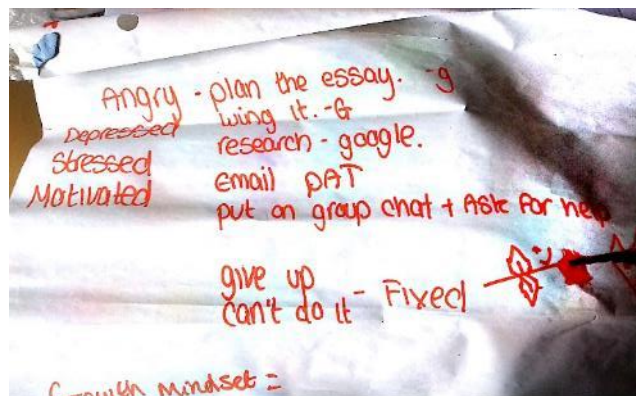 Angry - plan the essay. -g
Depressed wing it. -G
Stressed research - google.
Motivated email PAT
put on group chat + Ask for help
give up
can't do it - Fixed
Growth mindset =